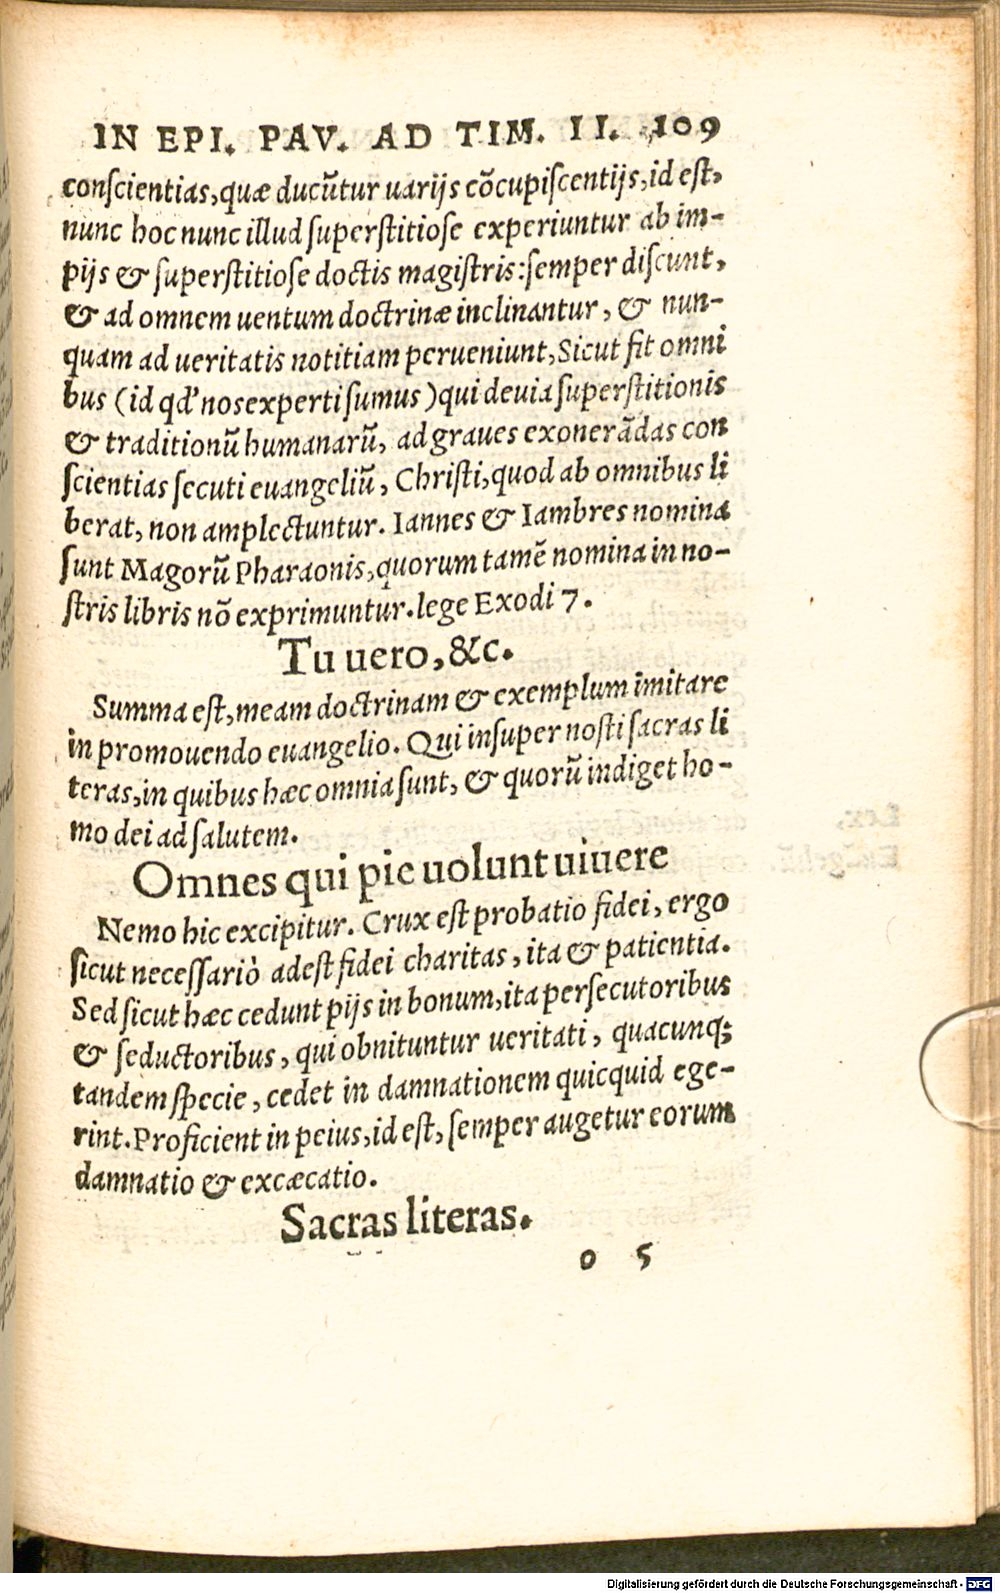 IN EPI. PAV. AD TIM. II. 109
conſcientias,quæ ducũtur uarijs cõcupiſcentijs,id eſt,
nunc hoc nunc illud ſuperſtitioſe experiuntur ab im-
pijs & ſuperſtitioſe doctis magiſtris:ſemper diſcunt,
& ad omnem uentum doctrinæ inclinantur, & nun-
quam ad ueritatis notitiam perueniunt,Sicut fit omni
bus (id qd' nos experti ſumus) qui deuia ſuperſtitionis
& traditionũ humanarũ, ad graues exonerãdas con
ſcientias ſecuti euangeliũ, Chriſti,quod ab omnibus li
berat, non amplectuntur. Iannes & Iambres nomina
ſunt Magorũ Pharaonis,quorum tamẽ nomina in no-
ſtris libris nõ exprimuntur.lege Exodi 7.
Tu uero,&c.
Summa eſt,meam doctrinam & exemplum imitare
in promouendo euangelio. Qui inſuper noſti ſacras li
teras,in quibus hæc omnia ſunt, & quorũ indiget ho-
mo dei ad ſalutem.
Omnes qui pie uolunt uiuere
Nemo hic excipitur. Crux eſt probatio fidei, ergo
ſicut neceſſariò adeſt fidei charitas, ita & patientia.
Sed ſicut hæc cedunt pijs in bonum,ita perſecutoribus
& ſeductoribus, qui obnituntur ueritati, quacunq;
tandem ſpecie, cedet in damnationem quicquid ege-
rint.Proficient in peius,id eſt, ſemper augetur eorum
damnatio & excæcatio.
Sacras literas.
o 5
Digitalisierung gefördert durch die Deutsche Forschungsgemeinschaft - DFG